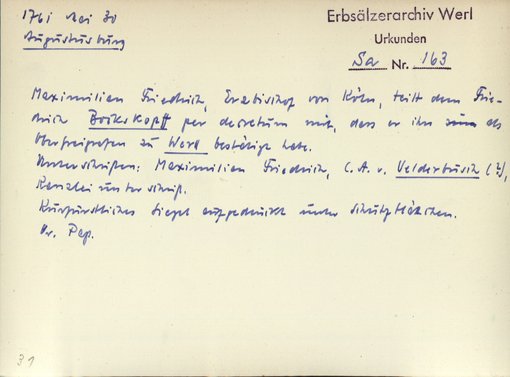 1761 Mai 30
Augustusburg
Erbsälzerarchiv Werl
Urkunden
Sa Nr. 163
Maximilian Friedrich, Erzbischof von Köln, teilt dem Frie-
drich Bockskopff per decretum mit, dass er ihn als
Oberfreigrafen zu Werl bestätigt habe.
Unterschriften: Maximilian Friedrich, C. A. v. Velderbusch (?),
Kanzleiunterschrift.
Kurfürstliches Siegel aufgedrückt unter Schutzblättchen.
Or. Pap.
31